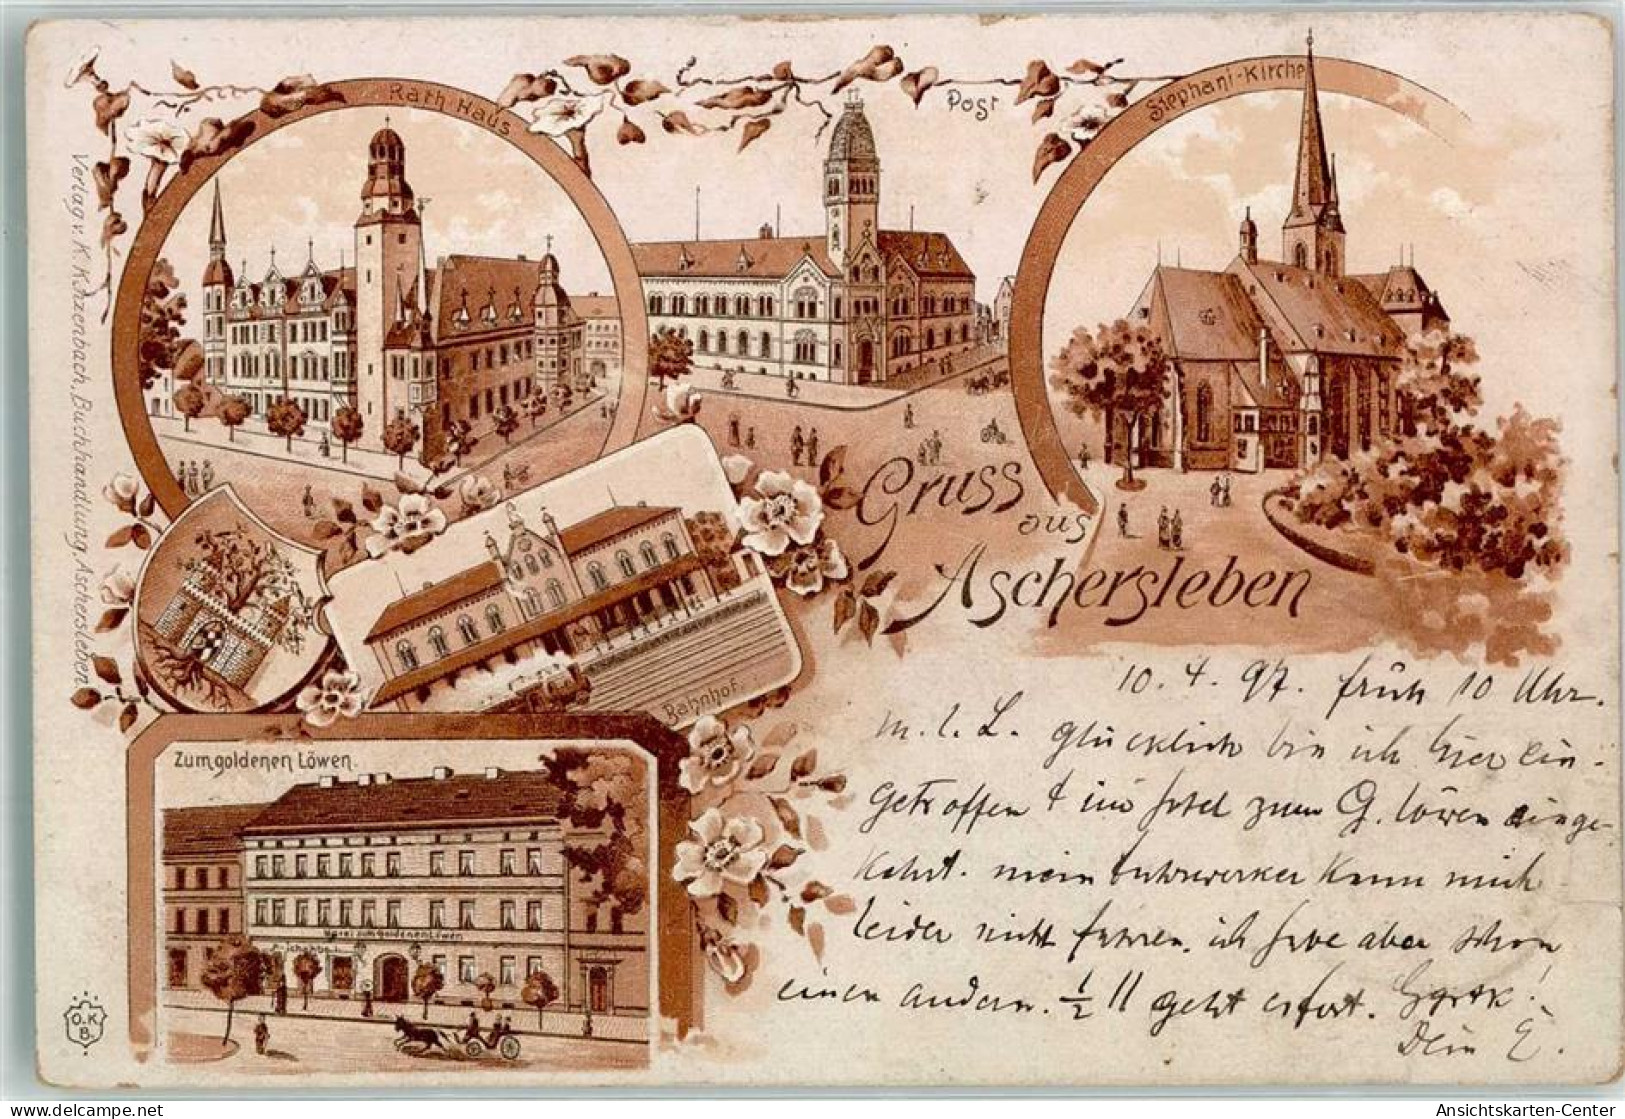 Rath Haus
Post
Stephani-Kirche
Verlag v. K. Kinzenbach, Buchhandlung, Aschersleben.
Gruss
aus
Aschersleben
Bahnhof.
Zum goldenen Löwen.
Hotel zum goldenen Löwen
O.K.
B.
10. 4. 97. früh 10 Uhr.
M. l. L. Glücklich bin ich hier ein-
getroffen & im Hotel zum G. Löwen einge-
kehrt. mein Fuhrwerker kann mich
leider nicht fahren. ich habe aber schon
einen andern. ½ 11 geht es fort.
Dein E.
Ansichtskarten-Center